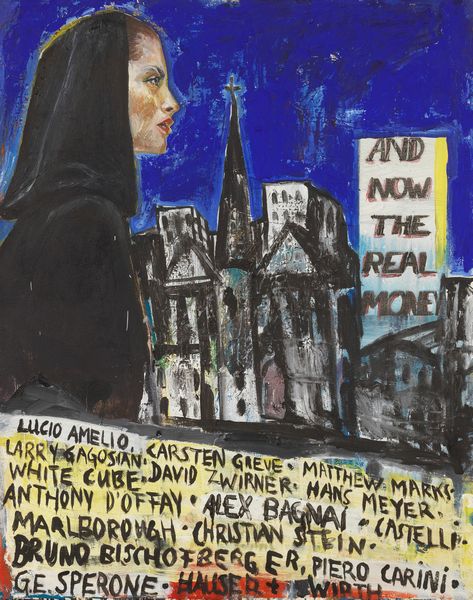 AND
NOW
THE
REAL
MONEY
LUCIO AMELIO.
LARRY GAGOSIAN. CARSTEN GREVE. MATTHEW MARKS.
WHITE CUBE. DAVID ZWIRNER. HANS MEYER.
ANTHONY D'OFFAY. ALEX BAGNAI. CASTELLI.
MARLBOROUGH. CHRISTIAN STEIN.
BRUNO BISCHOFBERGER, PIERO CARINI.
G.E. SPERONE. HAUSER + WIRTH